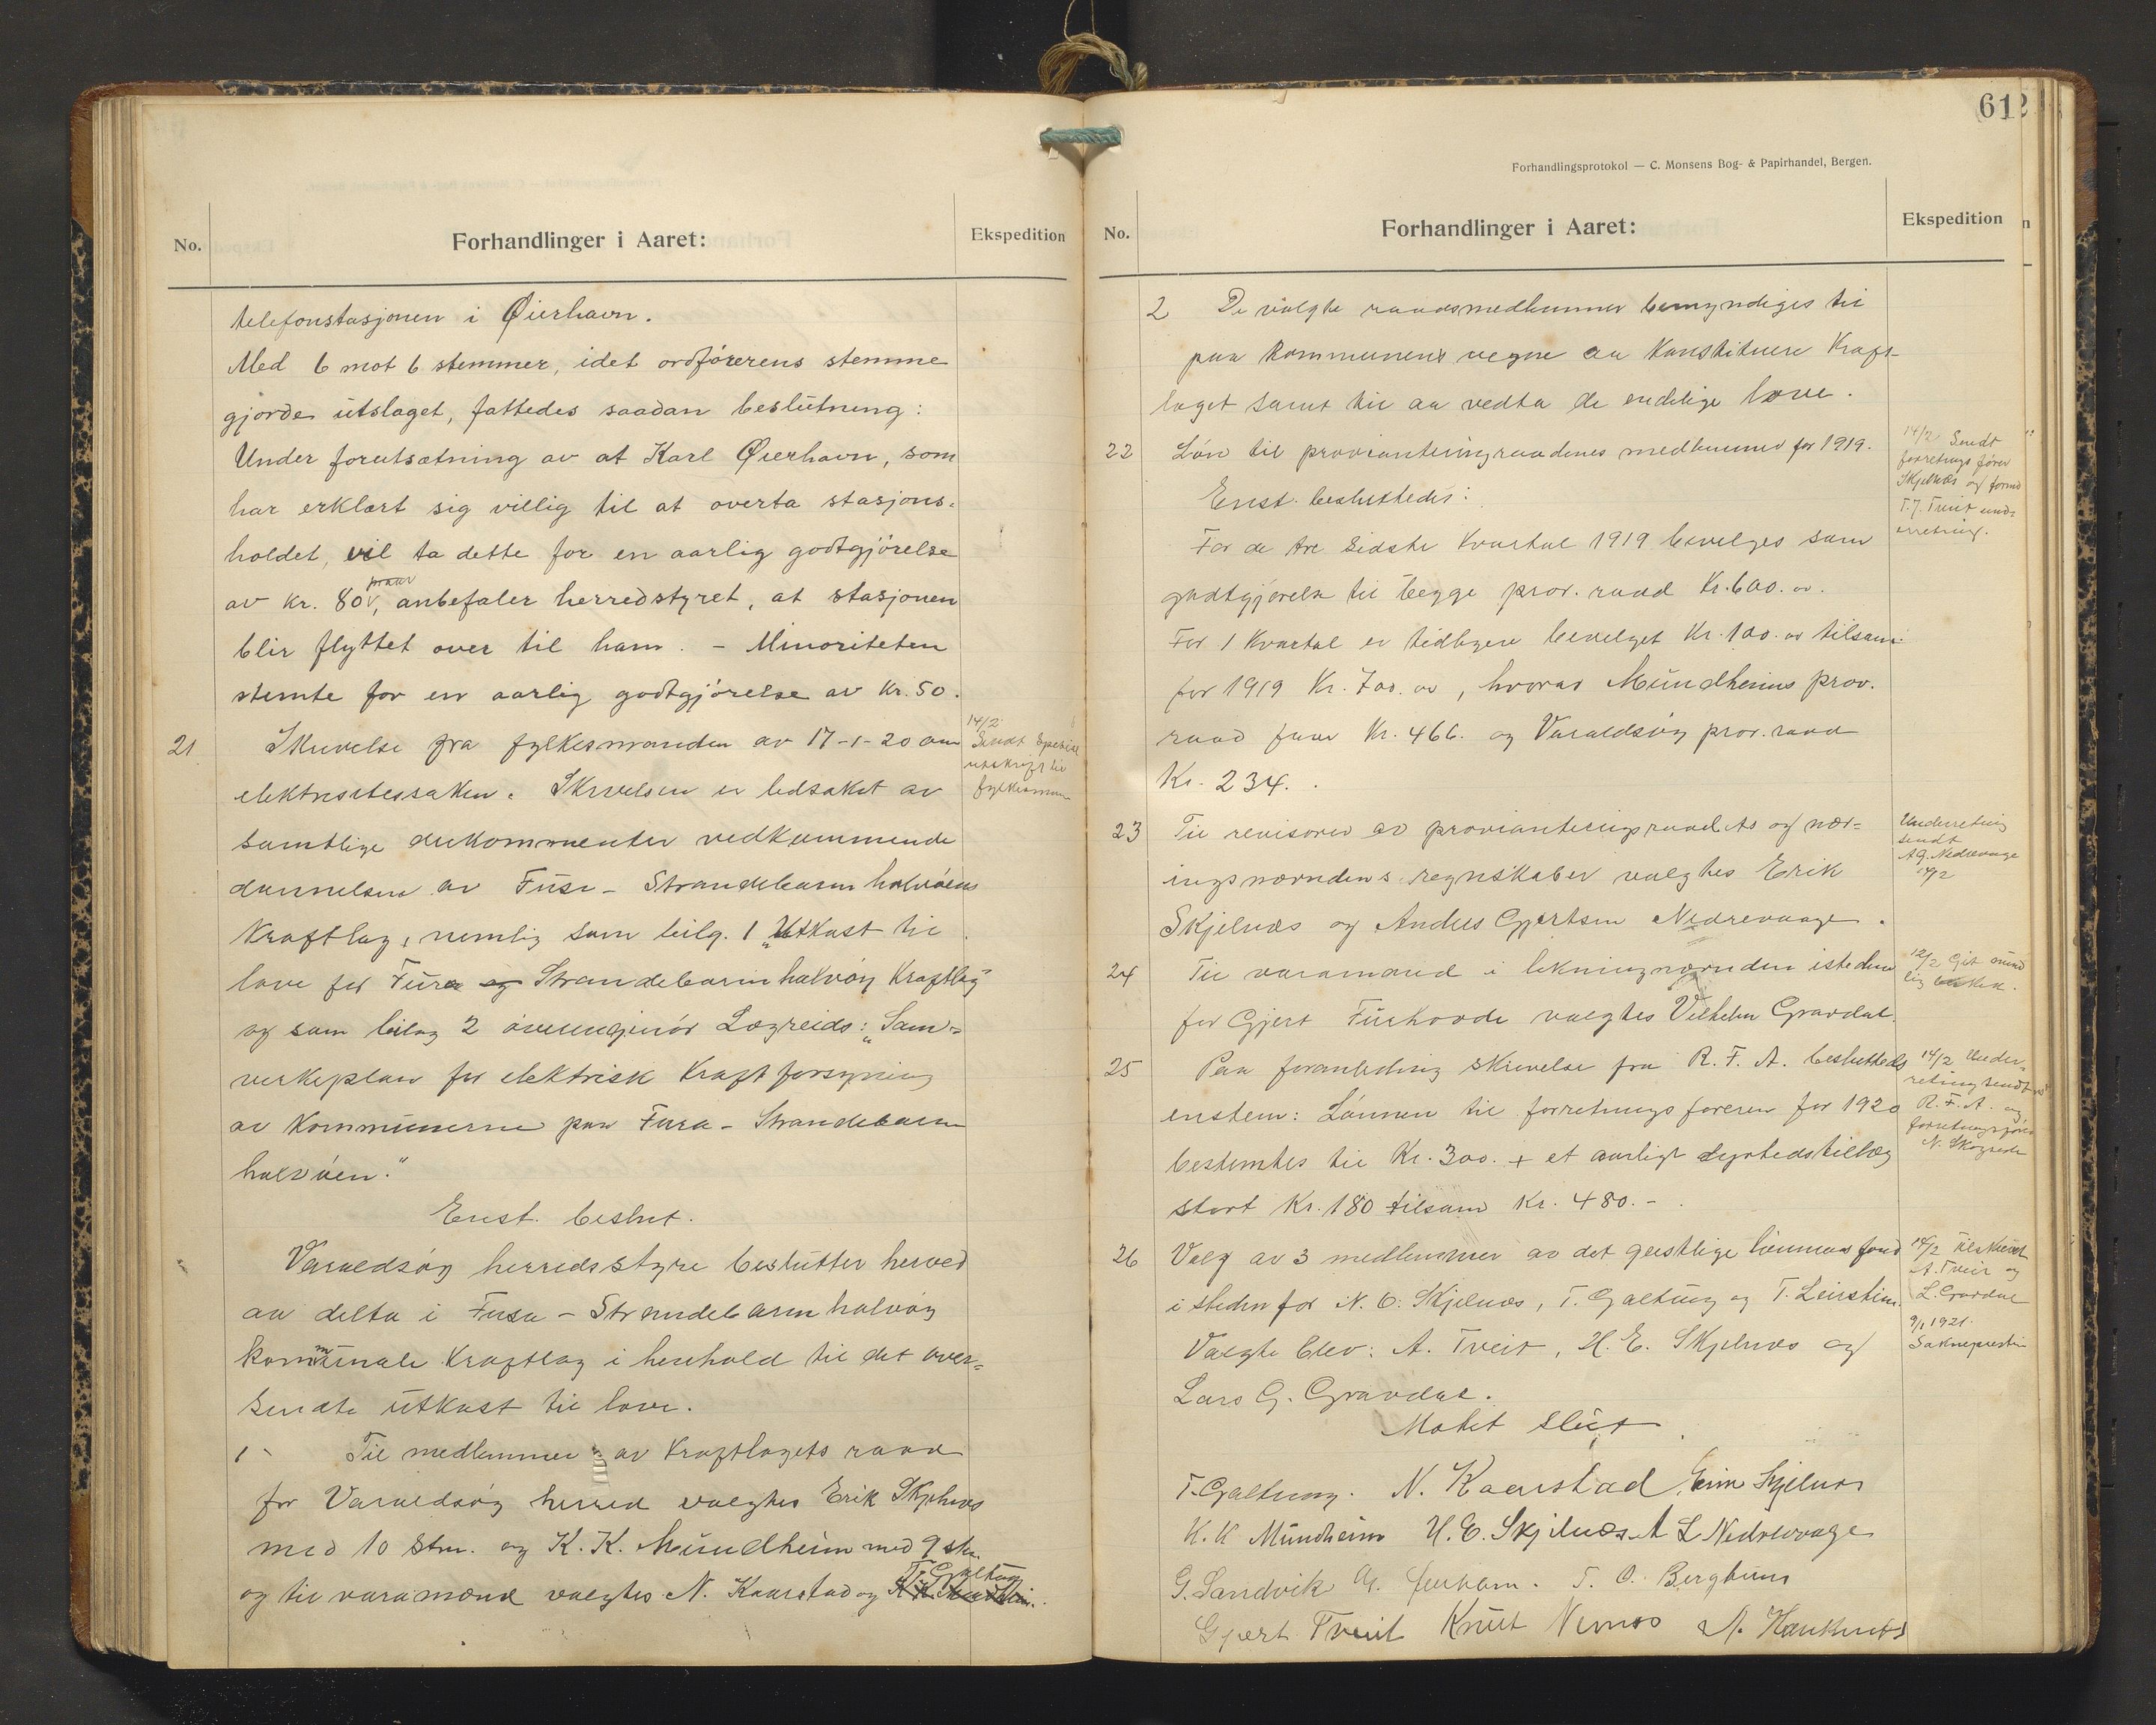 No.
Forhandlinger i Aaret:
Ekspedition
telefonstasjonen i Øierhavn.
Med 6 mot 6 stemmer, idet ordførerens stemme
gjorde utslaget, fattedes saadan beslutning:
Under forutsætning av at Karl Øierhavn, som
har erklært sig villig til at overta stasjons-
holdet, vil ta dette for en aarlig godtgjørelse
av kr. 80, anbefaler herredstyret, at stasjonen
blir flyttet over til ham. - Minoriteten
stemte for en aarlig godtgjørelse av kr. 50.
21 Skrivelse fra fylkesmanden av 17-1-20 om
elektrisitessaken. Skrivelsen er ledsaket av
samtlige dokommenter vedkommende
dannelsen av Fusa - Strandebarm halvøens
Kraftlag, nemlig som bilg. 1 „Utkast til
love for Fusa og Strandebarm halvøy Kraftlag"
og som bilag 2 Lægreids: „Sam-
verkeplan for elektrisk Kraft forsyning
av Kommunerne paa Fusa - Strandebarm
halvøen."
14/2
Sendt
utskrift til
fylkesman
Enst. beslut.
Varaldsøy herredsstyre beslutter herved
aa delta i Fusa - Strandebarm halvøy
kommunale Kraftlag i henhold til det over-
sendte utkast til love.
1 Til medlemmer av Kraftlagets raad
for Varaldsøy herred valgtes Erik Skjelnæs
med 10 stm. og K. K. Mundheim med 9 stm.
og til varamænd valgtes N. Kaarstad og T. Galtung
612
Forhandlingsprotokol — C. Monsens Bog- & Papirhandel, Bergen.
No.
Forhandlinger i Aaret:
Ekspedition
2 De valgte raadsmedlemmer bemyndiges til
paa Kommunens vegne aa Konstituere Kraft-
laget samt til aa vedta de endelige love.
22 Løn til provianteringraadenes medlemmer for 1919.
Enst. besluttedes:
For de tre sidste Kvartal 1919 bevilges som
godtgjørelse til begge prov. raad Kr. 600.00.
For 1 Kvartal er tidligere bevilget Kr. 100.00 tilsam
for 1919 Kr. 700.00, hvorav Mundheims prov.
raad faar Kr. 466. og Varaldsøy prov. raad
Kr. 234.
14/2 Sendt
forretnings fører
Skjelnæs og formd
T. J. Tveit und-
erretning.
23 Til revisorer av provianteringsraadets og nær-
ingsnævndens regnskaber valgtes Erik
Skjelnæs og Anders Gjertsen Nedrevaage.
Underretning
sendt
A G. Nedrevaage
14/2
24 Til varamand i likningnævnden isteden
for Gjert Furhovde valgtes Vilhelm Gravdal.
12/2 Git mund
lig besked.
25 Paa foranledning skrivelse fra R. F. A. besluttedes
enstem: Lønnen til forretnings føreren for 1920
bestemtes til Kr. 300. + et aarligt dyrtidstillæg
stort Kr. 180 tilsam Kr. 480.-
14/2 Under-
retning sendt
R. F. A. og
forretningsfører
26 Valg av 3 medlemmer av det geistlige lønnens fond
isteden for N. O. Skjelnæs, T. Galtung og T. Leirstein.
Valgte blev: A. Tveit, H. E. Skjelnæs og
Lars G. Gravdal.
14/2 tilskrevet
A. Tveit og
L. Gravdal
9/1 1921.
Sokneprestin
Møtet slut.
T. Galtung. N. Kaarstad Erik Skjelnæs
K. K Mundheim H. E. Skjelnæs A L Nedrevaage
G. Sandvik T. O. Berghum
Gjert Tveit Knut Nernes